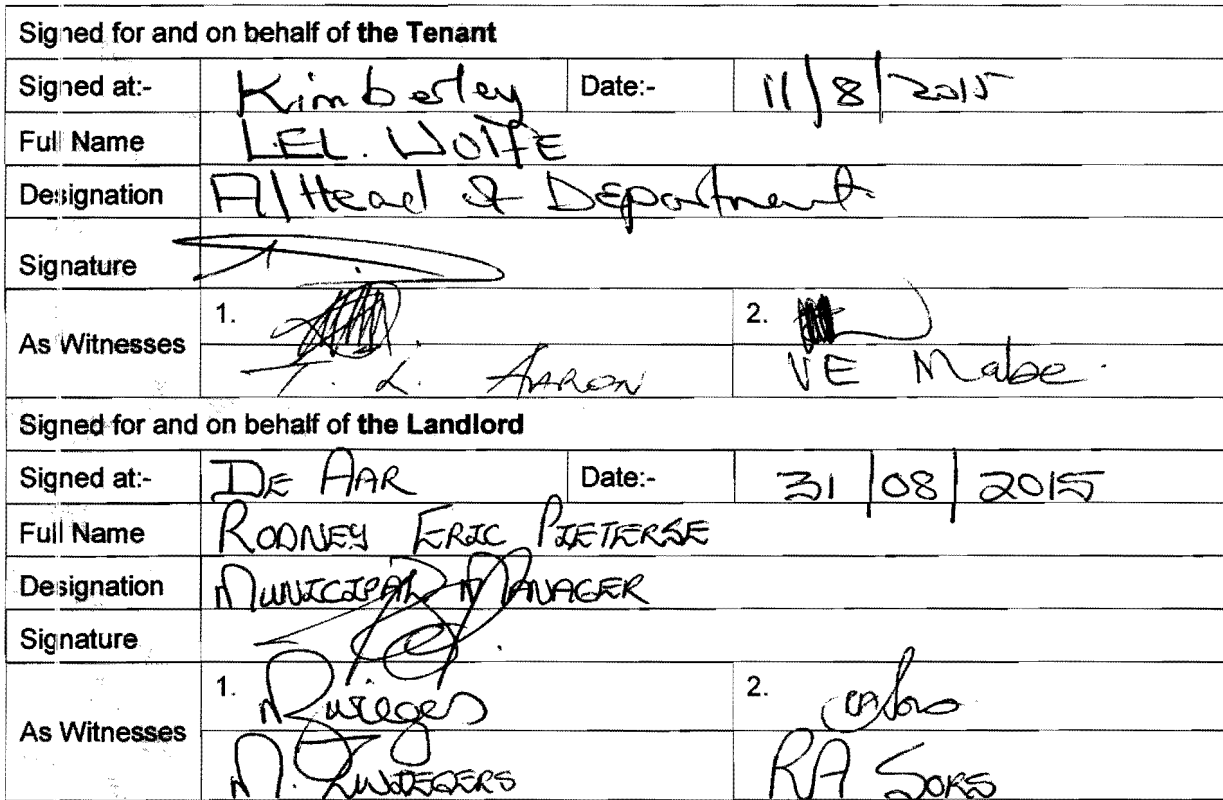 Signed for and on behalf of the Tenant
Signed at:- Kimberley Date:- 11/8/2015
Full Name L.E.L. WOLFE
Designation A/Head of Department
Signature
As Witnesses 1. 2.
T. L. AARON VE Mabe.
Signed for and on behalf of the Landlord
Signed at:- DE AAR Date:- 31/08/2015
Full Name RODNEY ERIC PIETERSE
Designation MUNICIPAL MANAGER
Signature
As Witnesses 1. 2.
M. RA SORS